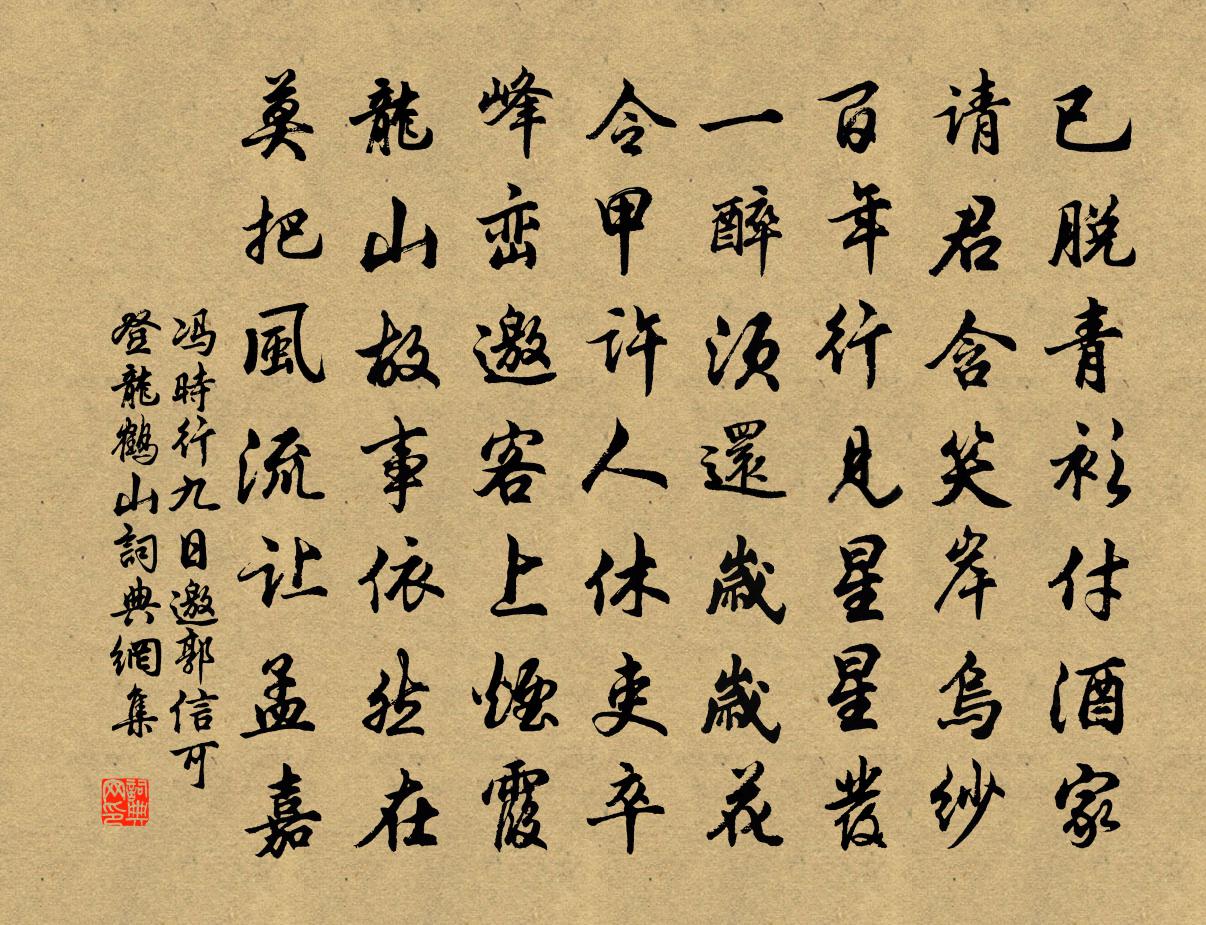 已脱青衫付酒家
请君含笑岸乌纱
百年行见星星發
一醉须還歲歲花
令甲許人休吏卒
峰峦邀客上煙霞
龍山故事依然在
莫把風流让孟嘉
冯時行九日邀郭信可
登龍鶴山詞典網集
詞典
网印